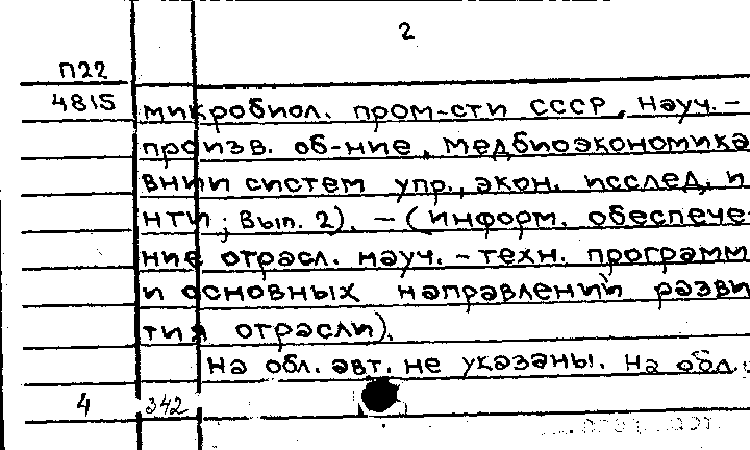 2
П22
4815 микробиол. пром-сти СССР, Науч.-
произв. об-ние, Медбиоэкономика
ВНИИ систем упр., экон. исслед. и
НТИ; Вып. 2). – (Информ. обеспече-
ние отрасл. науч.-техн. программ
и основных направлений разви
тия отрасли).
На обл. авт. не указаны. На обл.
4 342